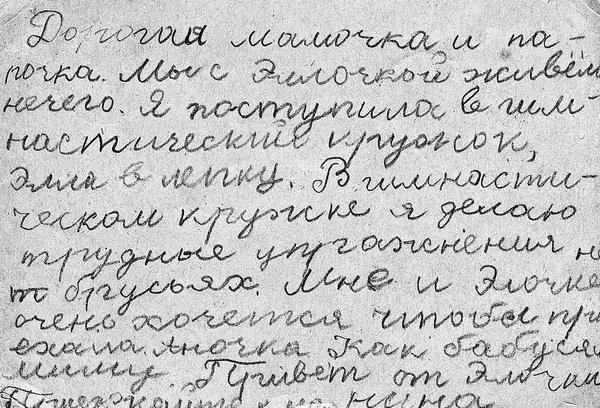 Дорогая мамочка и па-
почка. Мы с Эллочкой живём
нечего. Я поступила в гим-
настический кружок,
Элла в лепку. В гимнасти-
ческом кружке я делаю
трудные упражнения н
т брусьях. Мне и Элочке
очень хочется чтобы при
ехала Яночка Как бабуся
Привет от Элочки